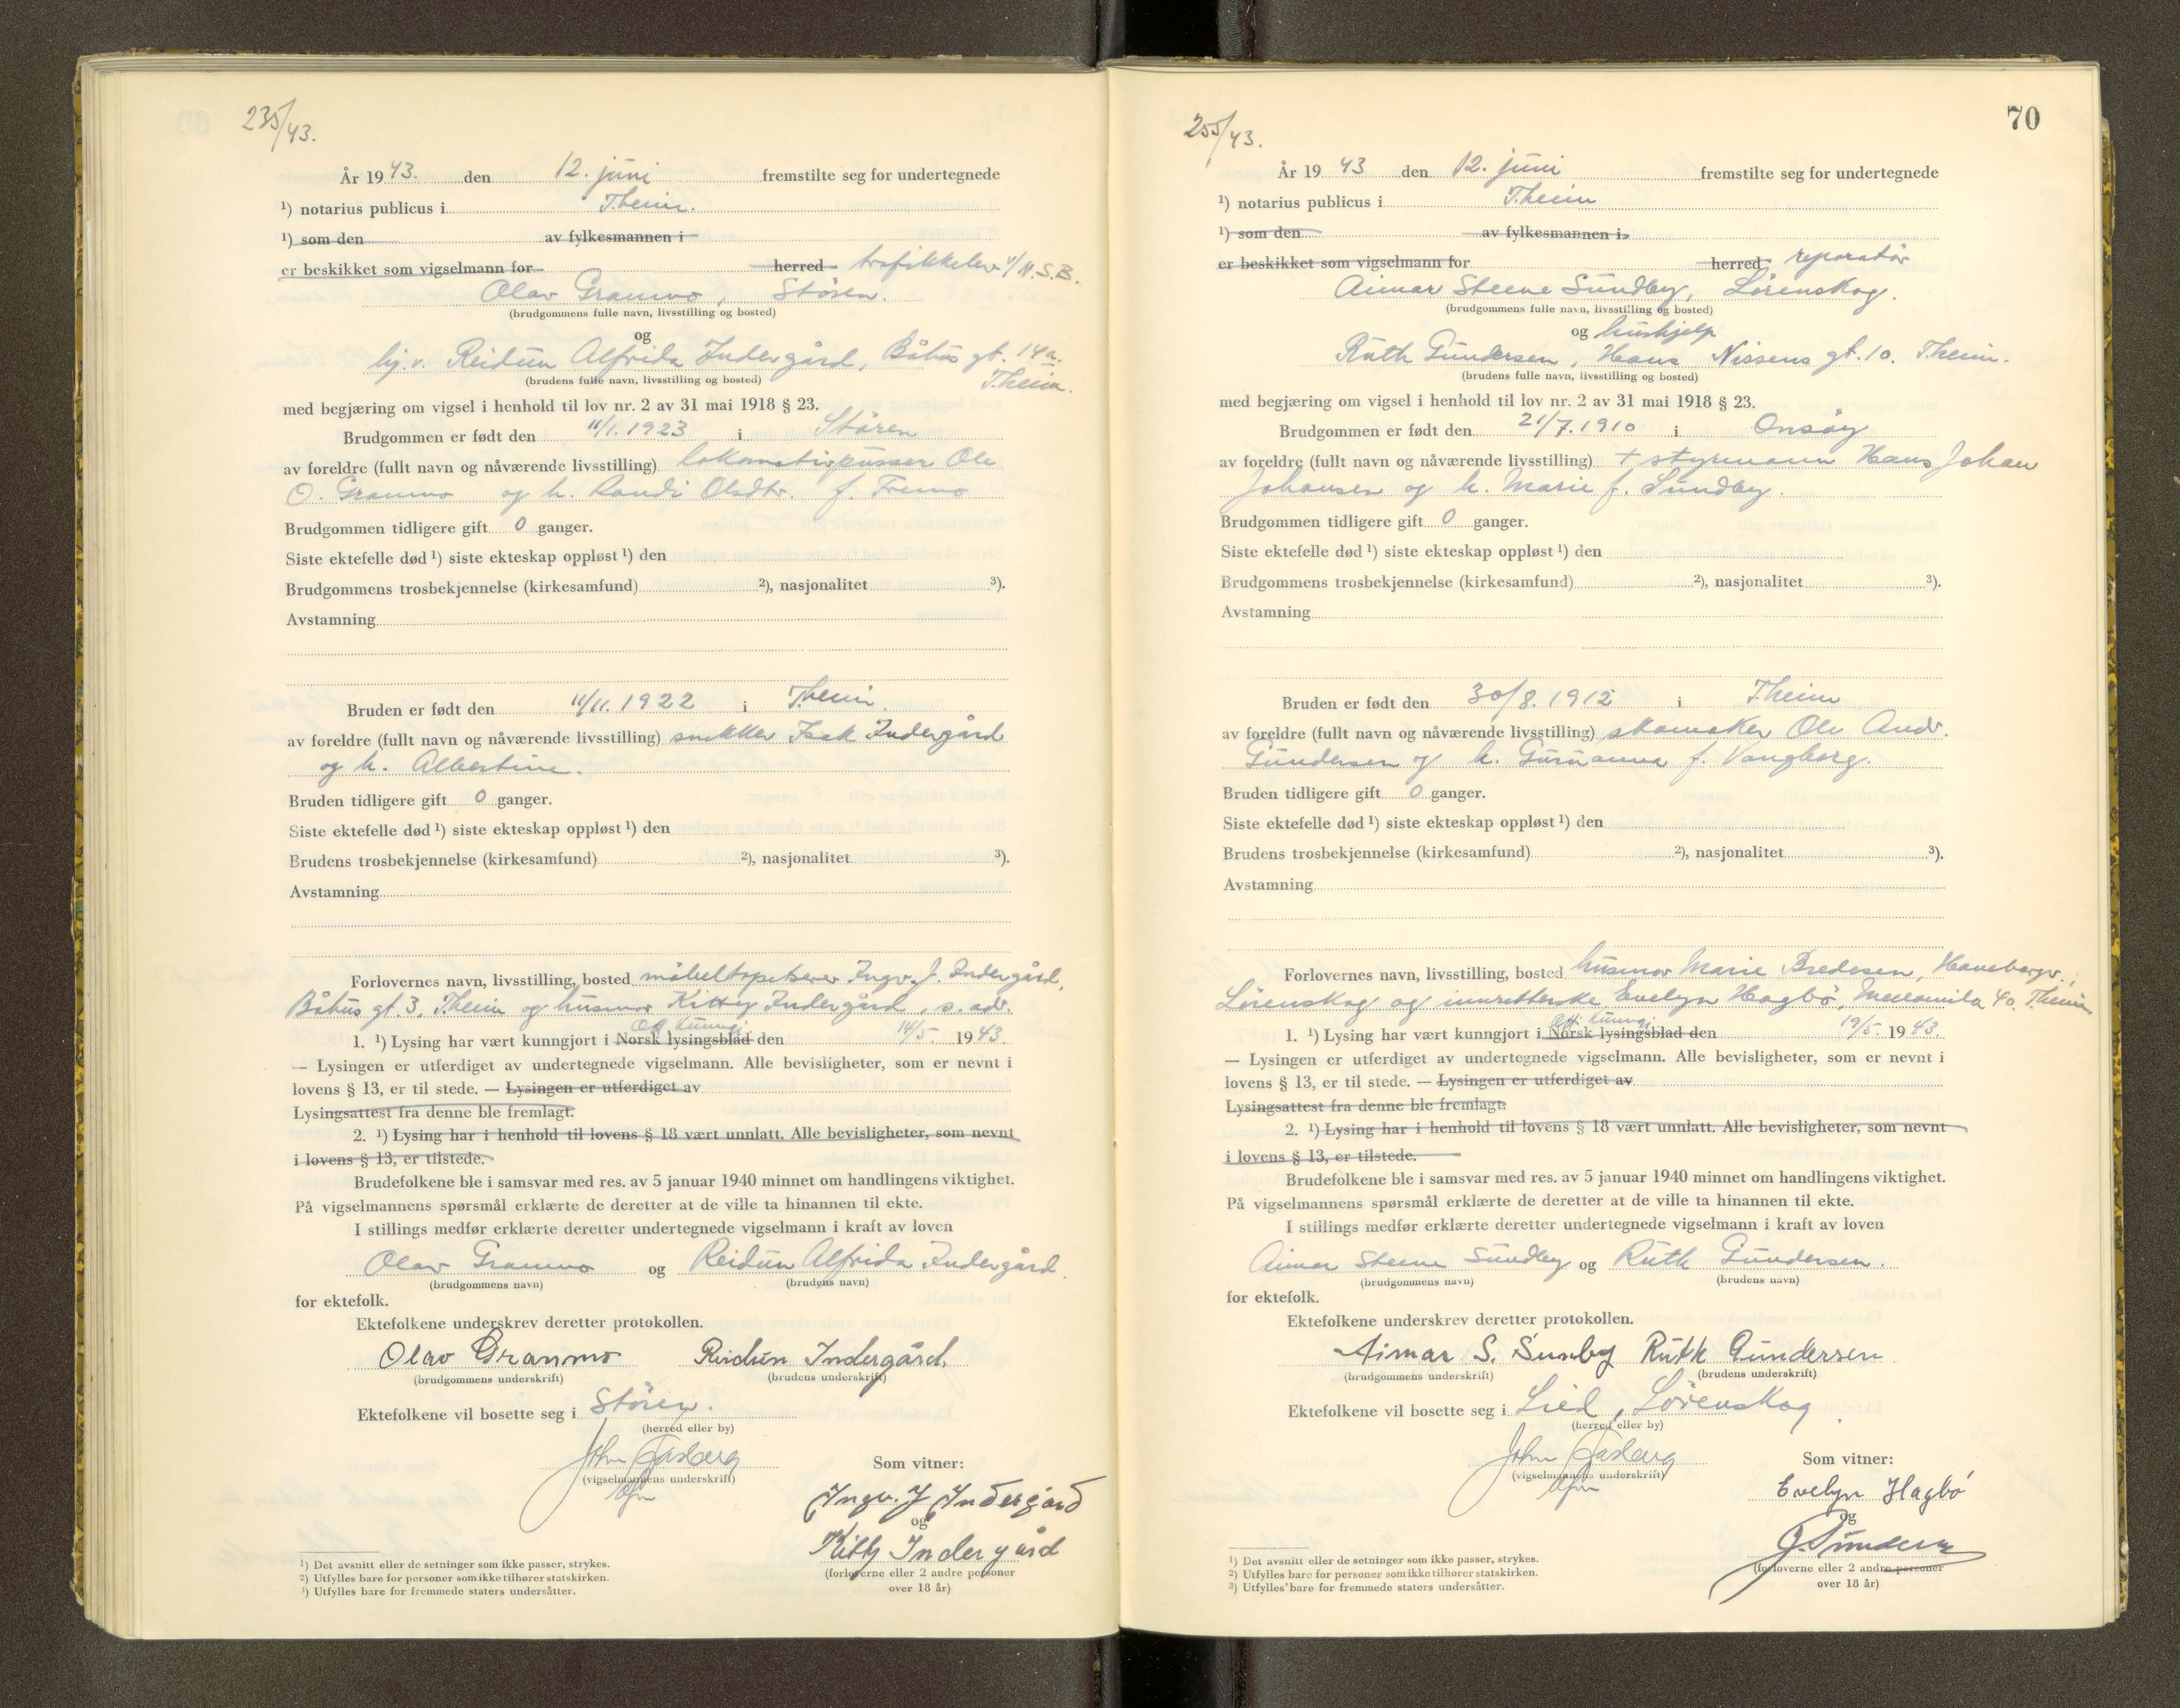 235/43.
År 1943. den 12. juni fremstilte seg for undertegnede
¹) notarius publicus i T.heim.
¹) som den av fylkesmannen i
er beskikket som vigselmann for herred trafikkelev v/N.S.B.
Olav Granmo, Støren.
(brudgommens fulle navn, livsstilling og bosted)
og
hj. v. Reidun Alfrida Indergård, Båhus gt. 14a.
T.heim.
(brudens fulle navn, livsstilling og bosted)
med begjæring om vigsel i henhold til lov nr. 2 av 31 mai 1918 § 23.
Brudgommen er født den 11/1.1923 i Støren
av foreldre (fullt navn og nåværende livsstilling) lokomotivpusser Ole
O. Granmo og h. Randi Olsdtr. f. Fremo
Brudgommen tidligere gift 0 ganger.
Siste ektefelle død ¹) siste ekteskap oppløst ¹) den
Brudgommens trosbekjennelse (kirkesamfund) ²), nasjonalitet ³).
Avstamning
Bruden er født den 11/11.1922 i T.heim.
av foreldre (fullt navn og nåværende livsstilling) snekker Isak Indergård
og h. Albertine.
Bruden tidligere gift 0 ganger.
Siste ektefelle død ¹) siste ekteskap oppløst ¹) den
Brudens trosbekjennelse (kirkesamfund) ²), nasjonalitet ³).
Avstamning
Forlovernes navn, livsstilling, bosted møbeltapetserer Ingv. J. Indergård,
Båhus gt. 3, T.heim og husmor Kitty Indergård, s. adr.
Off. kunngj.
1. ¹) Lysing har vært kunngjort i Norsk lysingsblad den 14/5. 1943.
— Lysingen er utferdiget av undertegnede vigselmann. Alle bevisligheter, som er nevnt i
lovens § 13, er til stede. — Lysingen er utferdiget av
Lysingsattest fra denne ble fremlagt.
2. ¹) Lysing har i henhold til lovens § 18 vært unnlatt. Alle bevisligheter, som nevnt
i lovens § 13, er tilstede.
Brudefolkene ble i samsvar med res. av 5 januar 1940 minnet om handlingens viktighet.
På vigselmannens spørsmål erklærte de deretter at de ville ta hinannen til ekte.
I stillings medfør erklærte deretter undertegnede vigselmann i kraft av loven
Olav Granmo og Reidun Alfrida Indergård.
(brudgommens navn) (brudens navn)
for ektefolk.
Ektefolkene underskrev deretter protokollen.
Olav Granmo Reidun Indergård.
(brudgommens underskrift) (brudens underskrift)
Ektefolkene vil bosette seg i Støren.
(herred eller by)
John
(vigselmannens underskrift)
Som vitner:
Ingv. J Indergård
og
Kitty Indergård
(forloverne eller 2 andre personer
over 18 år)
¹) Det avsnitt eller de setninger som ikke passer, strykes.
²) Utfylles bare for personer som ikke tilhører statskirken.
³) Utfylles bare for fremmede staters undersåtter.
70
255/43.
År 1943 den 12. juni fremstilte seg for undertegnede
¹) notarius publicus i T.heim
¹) som den av fylkesmannen i
er beskikket som vigselmann for herred reparatør
Aimar Steene Sundby, Lørenskog.
(brudgommens fulle navn, livsstilling og bosted)
og hushjelp
Ruth Gundersen, Hans Nissens gt. 10. T.heim.
(brudens fulle navn, livsstilling og bosted)
med begjæring om vigsel i henhold til lov nr. 2 av 31 mai 1918 § 23.
Brudgommen er født den 21/7.1910 i Onsøy
av foreldre (fullt navn og nåværende livsstilling) + styrmann Hans Johan
Johansen og h. Marie f. Sundby.
Brudgommen tidligere gift 0 ganger.
Siste ektefelle død ¹) siste ekteskap oppløst ¹) den
Brudgommens trosbekjennelse (kirkesamfund) ²), nasjonalitet ³).
Avstamning
Bruden er født den 30/8.1912 i T.heim
av foreldre (fullt navn og nåværende livsstilling) skomaker Ole Andr.
Gundersen og h. Gurianna f. Vangberg.
Bruden tidligere gift 0 ganger.
Siste ektefelle død ¹) siste ekteskap oppløst ¹) den
Brudens trosbekjennelse (kirkesamfund) ²), nasjonalitet ³).
Avstamning
Forlovernes navn, livsstilling, bosted husmor Marie Bredesen, Hanebergv.,
Lørenskog og innretterske Evelyn Hagbø, Mellomila 40. T.heim.
Off. kunngj.
1. ¹) Lysing har vært kunngjort i Norsk lysingsblad den 19/5. 1943.
— Lysingen er utferdiget av undertegnede vigselmann. Alle bevisligheter, som er nevnt i
lovens § 13, er til stede. — Lysingen er utferdiget av
Lysingsattest fra denne ble fremlagt.
2. ¹) Lysing har i henhold til lovens § 18 vært unnlatt. Alle bevisligheter, som nevnt
i lovens § 13, er tilstede.
Brudefolkene ble i samsvar med res. av 5 januar 1940 minnet om handlingens viktighet.
På vigselmannens spørsmål erklærte de deretter at de ville ta hinannen til ekte.
I stillings medfør erklærte deretter undertegnede vigselmann i kraft av loven
Aimar Steene Sundby og Ruth Gundersen.
(brudgommens navn) (brudens navn)
for ektefolk.
Ektefolkene underskrev deretter protokollen.
Aimar S. Sunby Ruth Gundersen
(brudgommens underskrift) (brudens underskrift)
Ektefolkene vil bosette seg i Lied, Lørenskog
(herred eller by)
John
(vigselmannens underskrift)
Som vitner:
Evelyn Hagbø
og
(forloverne eller 2 andre personer
over 18 år)
¹) Det avsnitt eller de setninger som ikke passer, strykes.
²) Utfylles bare for personer som ikke tilhører statskirken.
³) Utfylles bare for fremmede staters undersåtter.